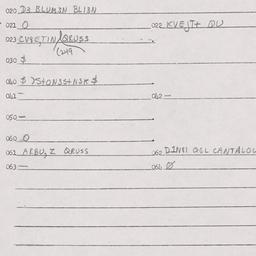 020 D3 BLUM3N BLI3N
021 0 022 KVEJT+ QU
023 CV8E,TIN QRUSS
C249
030 $
040 $ YS+ON3S+N3K $
041 – 042 –
050 –
060 0
061 ARBU,Z QRUSS 062 DINNI QCL CANTALOU
063 – 064 Ø